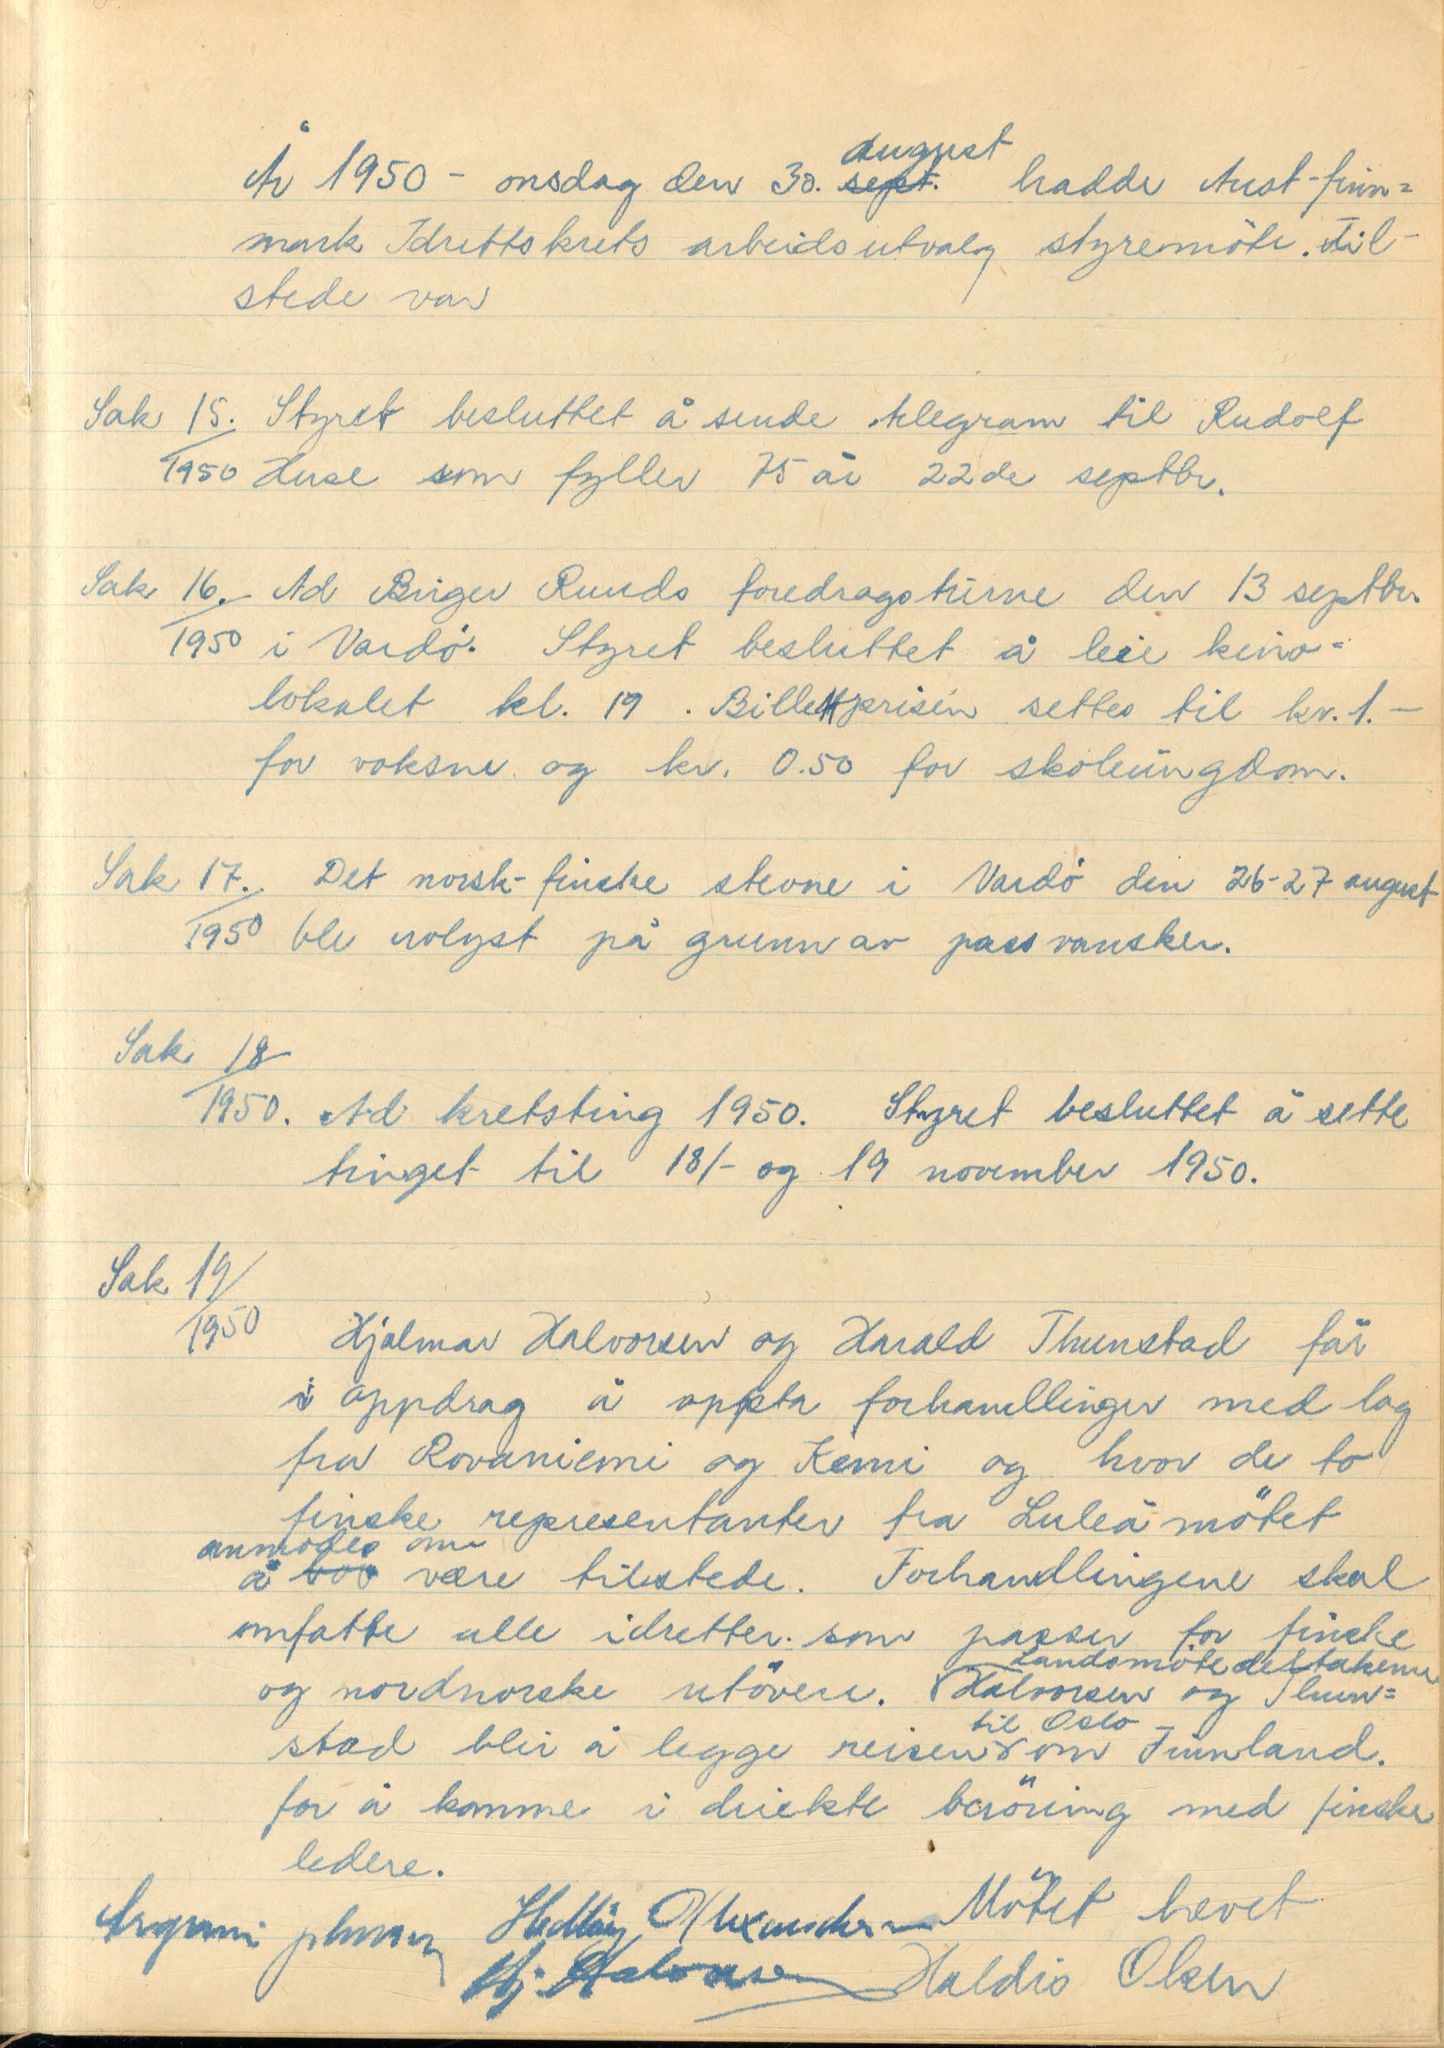 År 1950 - onsdag den 30. sept. august hadde Aust-finn=
mark Idrettskrets arbeidsutvalg styremöte. Til-
stede var
Sak 15. Styret besluttet å sende telegram til Rudolf
1950 Huse som fyller 75 år 22de septbr.
Sak 16. Ad Birger Ruuds foredragsturne den 13 septbr.
1950 i Vardö. Styret besluttet å leie kino=
lokalet kl. 19. Billettprisen settes til kr. 1.-
for voksne og kr. 0.50 for skoleungdom.
Sak 17. Det norsk-finske stevne i Vardö den 26-27 august
1950 ble avlyst på grunn av passvansker.
Sak 18
1950. Ad kretsting 1950. Styret besluttet å sette
tinget til 18/- og 19 november 1950.
Sak 19/
1950 Hjalmar Halvorsen og Harald Thunstad får
i oppdrag å oppta forhandlinger med lag
fra Rovaniemi og Kemi og hvor de to
finske representanter fra Luleåmötet
anmodes om
å være tilstede. Forhandlingene skal
omfatte alle idretter som passer for finske
landsmötedeltakerne
og nordnorske utövere. Halvorsen og Thun=
til Oslo
stad blir å legge reisen om Finnland.
for å komme i direkte beröring med finske
ledere.
Mötet hevet
Hj. Halvorsen Haldis Olsen